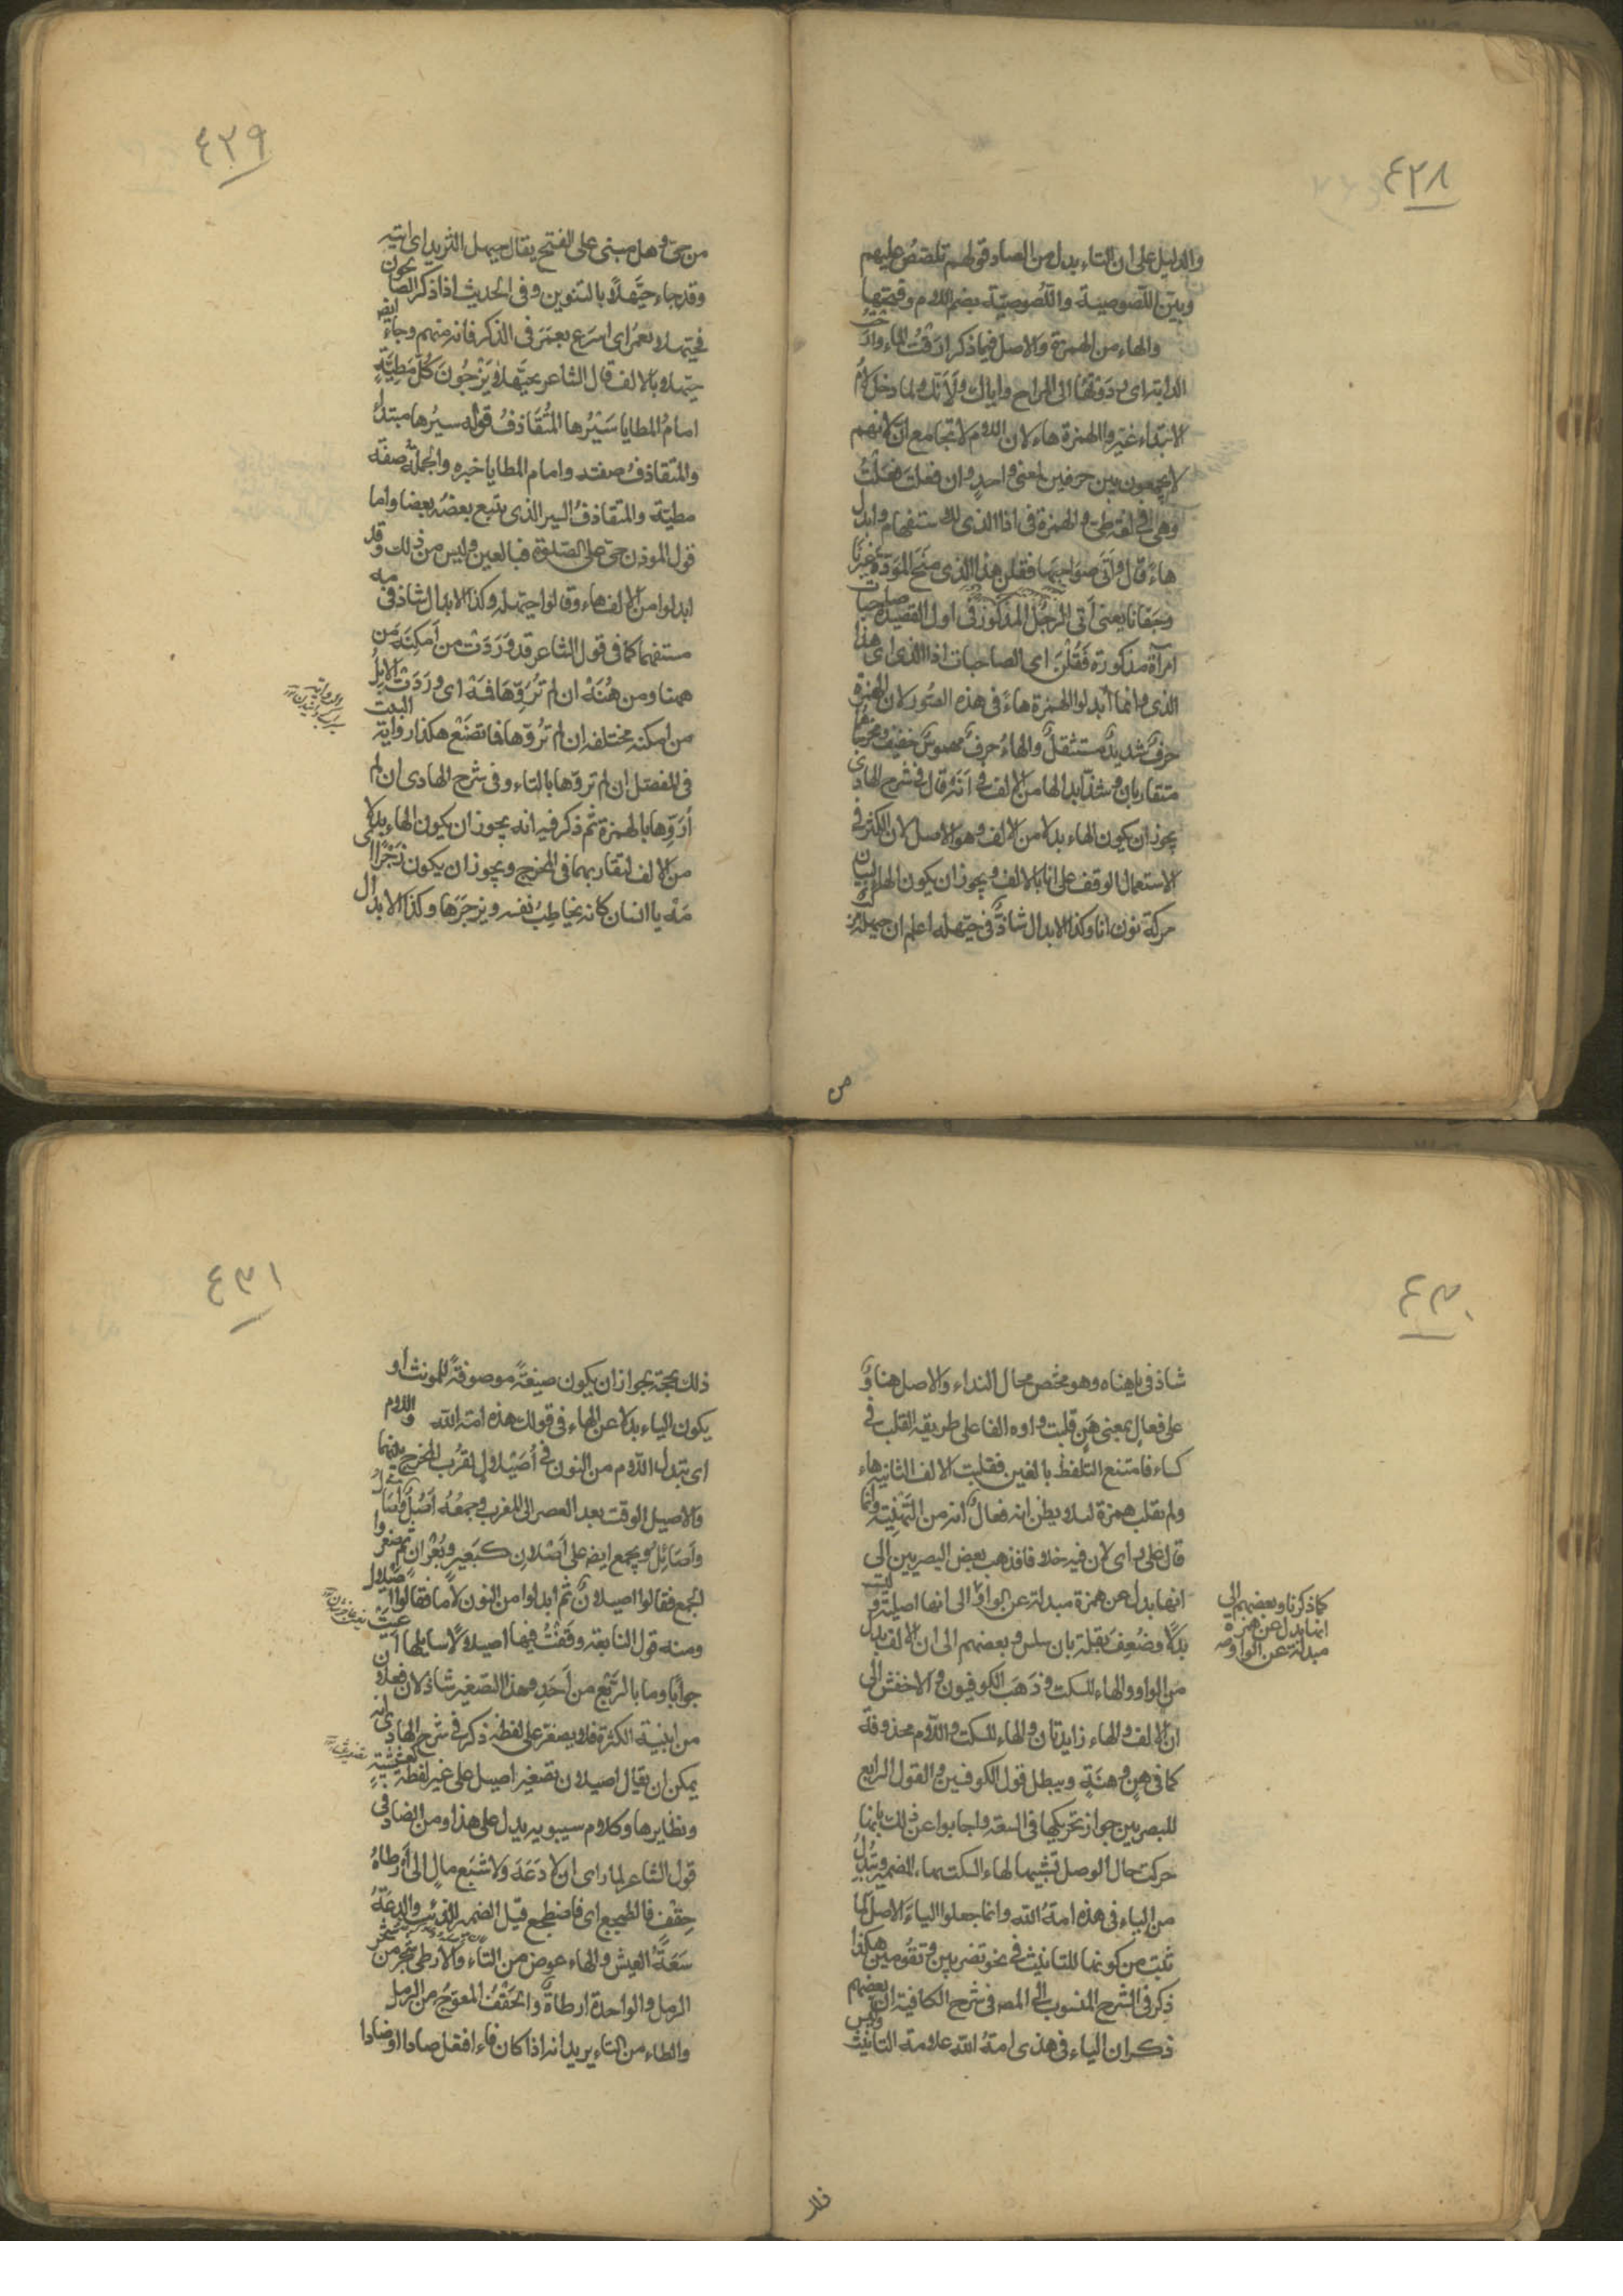 ٤٢٨
والدليل على ان التاء بدل من الصاد قولهم تلصّص عليهم
وبيّن اللّصوصية واللُّصوصيّة بضم اللام وفتحها
والهاء من الهمزة والاصل فيما ذكر ارقتُ الماء وارحتُ
الدابة اى رددتها الى المراح واياك ولَاَنّك ولما دخل لامُ
الابتداء غيّروا الهمزة هاء لان اللام لا تجامع انّ لانهم
لا يجمعون بين حرفين لمعنى واحدٍ وان فعلت فعلتُ
وهى فى لغة طى والهمزة فى اذا الذى للاستفهام وابدل
هاءً قال وَاَتَى صَوَاحِبَها فقلن هذا الذى منَحَ المَوَدّةَ غيرنَا
وجفانا يعنى اَتى الرجُل المذكور فى اول القصيدة صاحبات
امرآة مذكورة فَقُلْنَ اى الصاحبات اذا الذى اى هذا
الذى وانما أبدلوا الهمزة هاءً فى هذه الصُّور لان الهمزة
حرفٌ شديدٌ مستثقلٌ والهاءُ حرفٌ مهموسٌ خفيف ومخرجا هما
متقاربان وشذّ ابدالها من الالف فى اَنَهْ وقال فى شرح الهادى
يجوز ان يكون الهاء بدلا من الالف وهو الاصل لان الاكثر فى
الاستعمال الوقف على انا بالالف ويجوز ان يكون الهاء لبيان
حركة نون انا وكذا الابدال شاذةٌ فى حيّهله اعلم ان حيهله
من
٤٢٩
من حىّ وهل مبنى على الفتح يقال حيهل الثريد اى ايتيه
وقد جاء حيّهلًا بالتنوين وفى الحديث اذا ذكر الصالحون
فحيّهلا بعمر اى اسرع بعمر فى الذكر فانه منهم وجاء ايضه
حيّهلا بالالف قال الشاعر بحيّهلا يُزْجُونَ كلَّ مَطيَّةٍ
امامُ المطايا سَيْرُها المُتَقَاذفُ قوله سيرُها مبتدأ
والمتقاذفُ صفته وامام المطايا خبره والجملة صفة
مطيّة والمتقاذفُ السير الذى يتبع بعضُه بعضا واما
قول الموذن حىّ على الصّلوة فبالعين وليس من ذلك وقد
ابدلوا من الالف هاء وقالوا حيّهله وكذا الابدال شاذ فى مه
مستفهما كما فى قول الشاعر قد وَرَدَتْ من اَمكِنَه من
ههنا ومن هُنَهْ ان لم تُرَوِّهَا فَمَهْ اى وَرَدَت الابلُ
من امكنه مختلفه ان لم تُروّها فما تصنع هكذا رواية البيت
فى المفصّل ان لم تروّها بالتاء وفى شرح الهادى ان لم
اُرَوِّها بالهمزة ثم ذكر فيه انه يجوز ان يكون الهاء بدلا
من الالف لتقاربهما فى المخرج ويجوز ان يكون زجرًا اى
مَهْ يا انسان كانه يخاطِبُ نفسه ويزجرَها وكذا الابدال
٤٣٠
شاذ فى ياهناه وهو مختص بحال النداء والاصل هناوٌ
على فعال بمعنى هَنٍ قلبت واوه الفا على طريقه القلب فى
كساء فامتنع التلفظ بالفين فقلبت الالف الثانيه هاء
ولم يقلب همزة لئلا يظن انه فعالٌ انه من التهنِيَة وانما
قال على راى لان فيه خلافا فذهب بعض البصريين الى
انها بدل عن همزة مبدلة عن الواو الى انها اصلية وليست
بدلًا وضُعِفَ بقلة بان سلس وبعضهم الى ان الالف بدل
من الواو والهاء للسكت وذَهَبَ الكوفيون والاخفش الى
ان الالف والهاء زايدتان والهاء للسكت واللام محذوفة
كما فى هنٍ وهنَةٍ ويبطل قول الكوفيين والقول الرابع
للبصريين جواز تحريكها فى السعة واجابوا عن ذلك بانها
حركت حال الوصل تشبيها لهاء السكت بهاء الضمير وتُبْدلُ
من الياء فى هذه امةُ الله وانما جعلوا الياءَ الاصل لما
ثبت من كونها للتانيث فى نحو تضربين وتقُومين هكذا
ذكر فى الشرح المنسوب الى المصه فى شرح الكافية ان بعضهم
ذكر ان الياء فى هذى امةُ الله علامة التانيث وليس
كما ذكرنا وبعضهم الى
انها بدل عن همزة
مبدلة عن الواو صه
ذلك
٤٣١
ذلك بحجة لجواز ان يكون صيغةً موصوفةً للمونث او
يكون الياء بدلا عن الهاء فى قولك هذه امة الله واللام
اى تبدل اللام من النون فى اُصَيْلالٍ لقُرب المخرج بينهما
والاصيل الوقت بعد العصر الى المغرب وجمعُه اُصُل وآصَالٌ
وأَصَائلُ ويجمع ايضه على اُصْلانٍ كبَعيرٍ وبُعْرانٍ ثم صغروا
الجمع فقالوا اصيلانٌ ثم ابدلوا من النون لامًا فقالوا اُصَيْلال
ومنه قول النابغة وقَفْتُ فيها اصيلالًا اسايلها عيَّتْ
جوابًا وما بالرَّبْعِ من اَحَدِ وهذا التصغير شاذ لان فعلان
من ابنية الكثرة فلا يصغر على لفظه ذكر فى شرح الهادى انه
يمكن ان يقال اصيلان تصغير اصيل على غير لفظه كعشيشيةٍ
ونظايرها وكلام سيبويه يدل على هذا ومن الضاد فى
قول الشاعر لما راى ان لا دَعَهَ وَلا شبَع مال الى اَرطاةُ
حِقْفٍ فالطجع اى فاضطجع قيل الضمير للذئب والدعَةُ
سَعَةُ العيش والهاء عوض من التاء والارطى شجر من شجر
الرمل والواحدة ارطاةٌ والحِقْفُ المعوجُ من الرمل
والطاء من التاء يريد انه اذا كان فاء افتعل صادا اوضادا